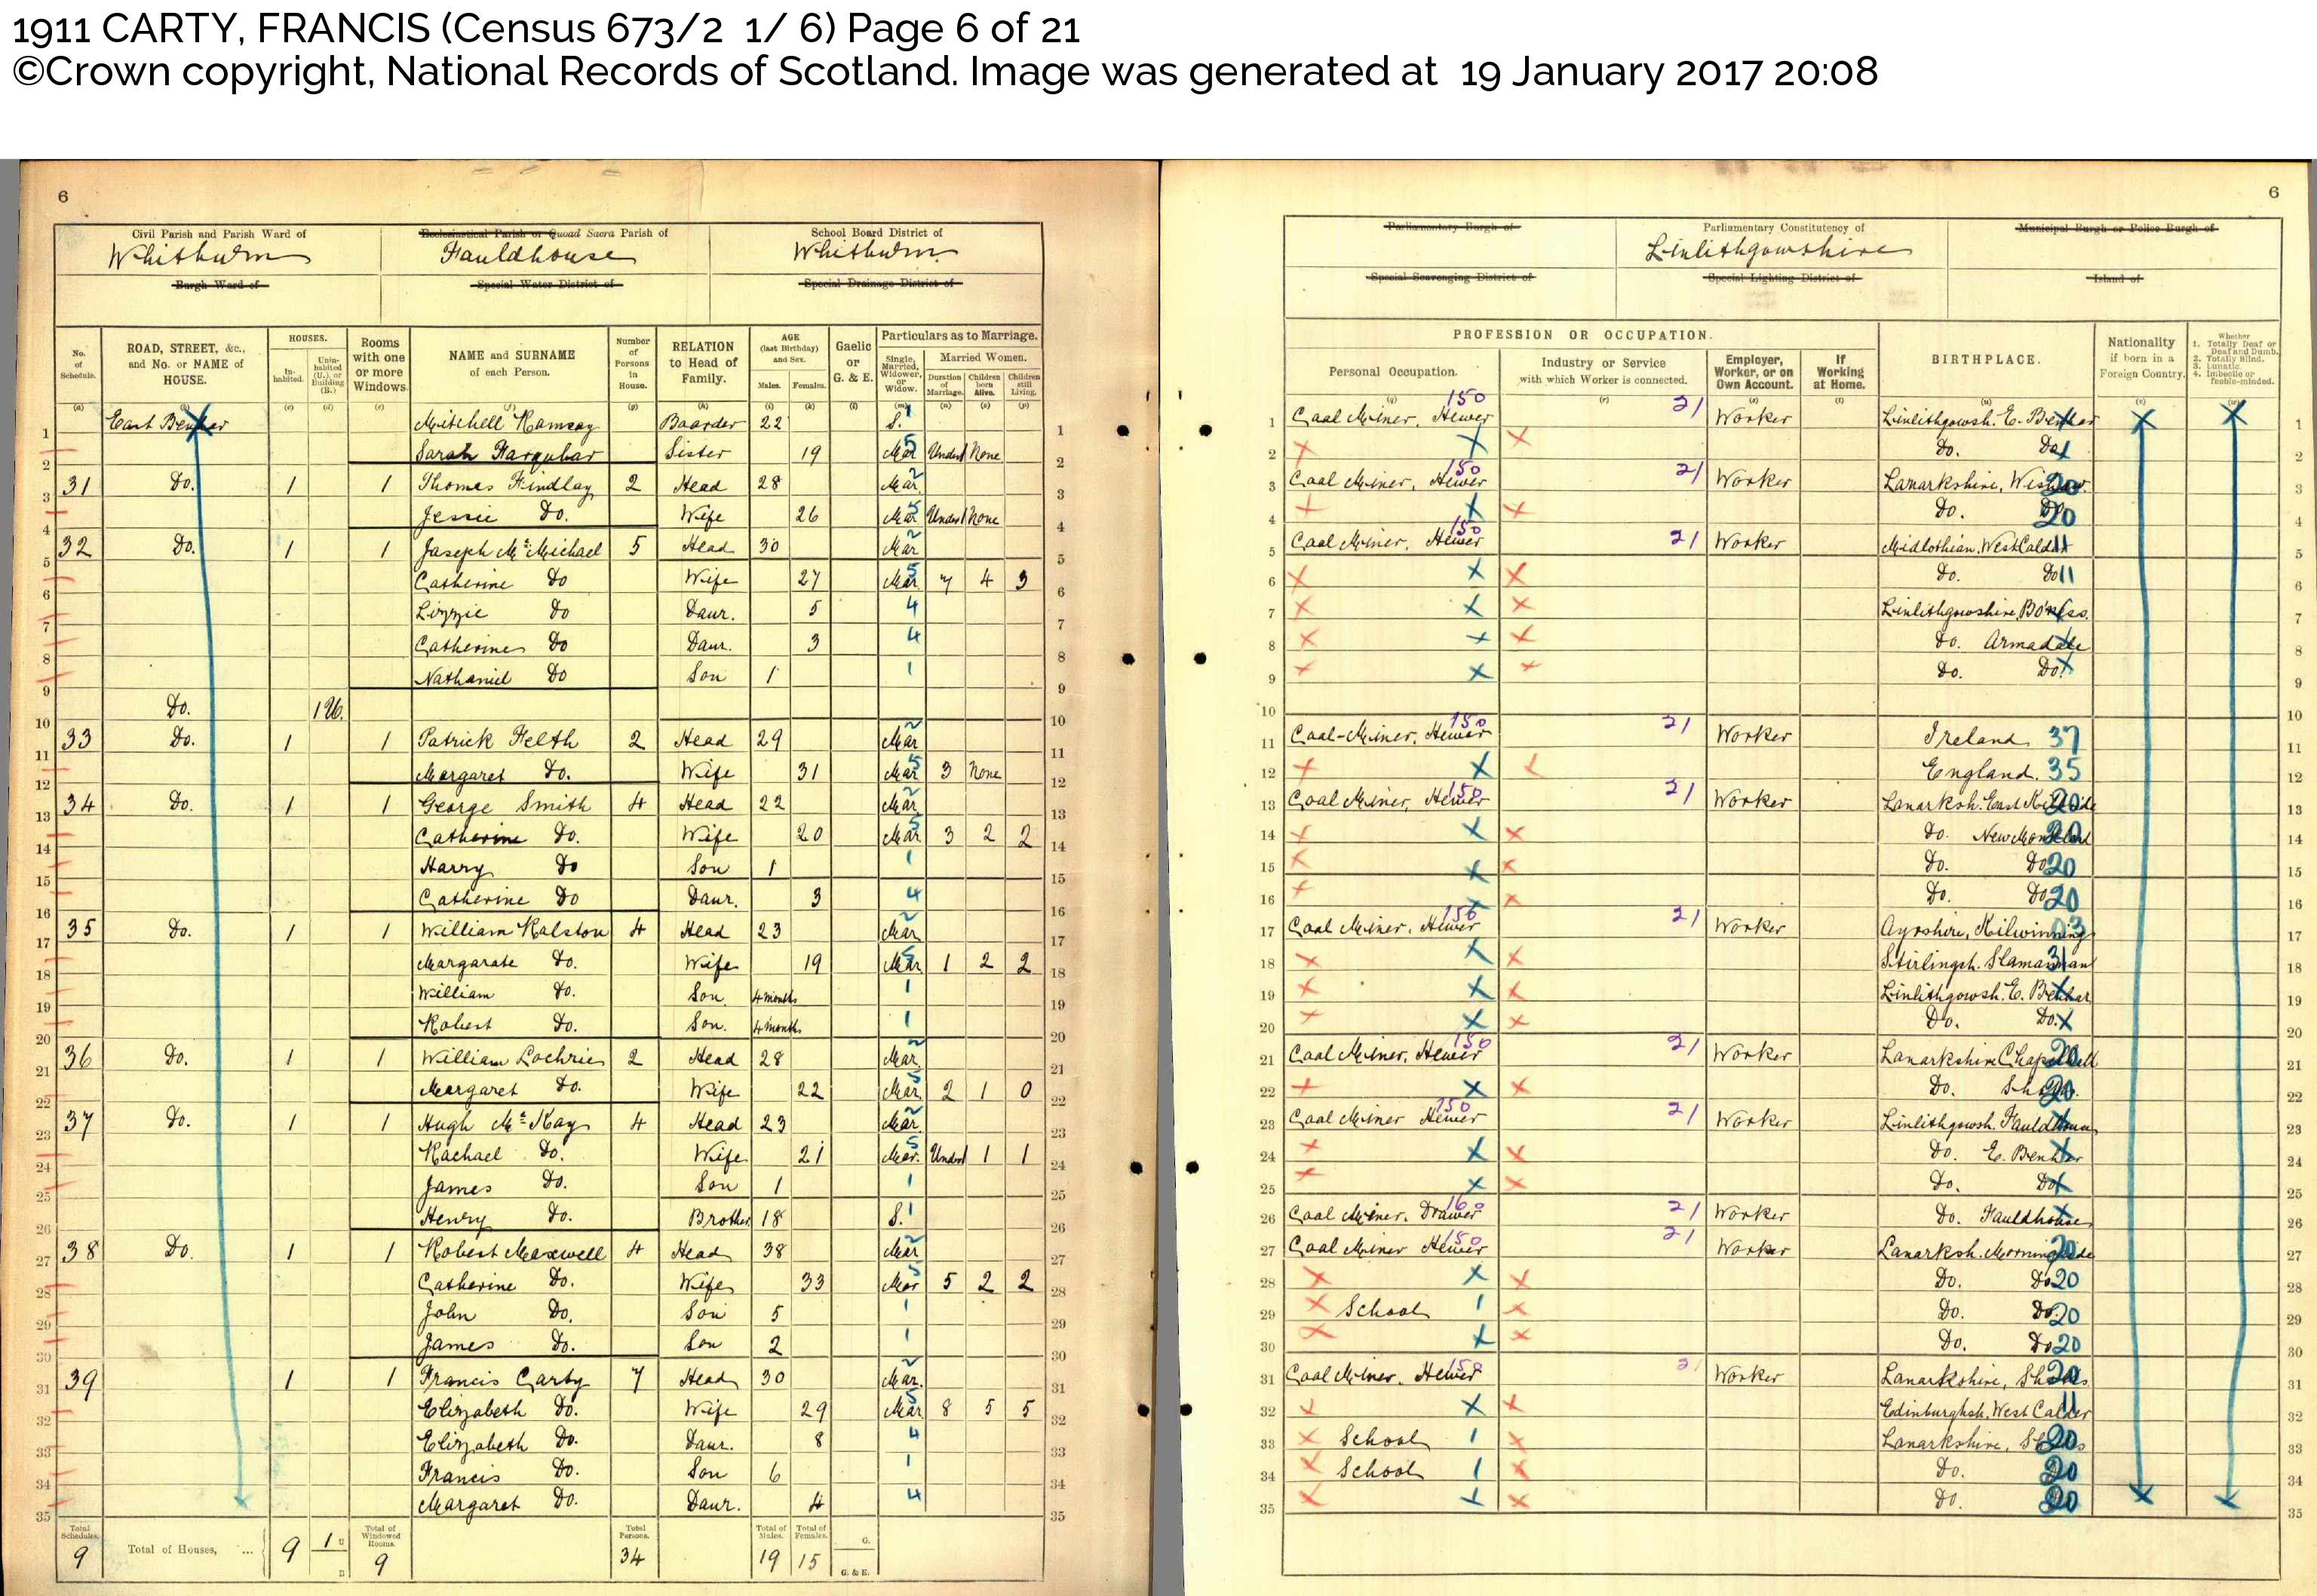 1911 CARTY, FRANCIS (Census 673/2 1/ 6) Page 6 of 21
©Crown copyright, National Records of Scotland. Image was generated at 19 January 2017 20:08
6
6
Civil Parish and Parish Ward of Ecclesiastical Parish or Quoad Sacra Parish of School Board District of
Whitburn Fauldhouse Whitburn
Burgh Ward of Special Water District of Special Drainage District of
Parliamentary Burgh of Parliamentary Constituency of Municipal Burgh or Police Burgh of
Linlithgowshire
Special Scavenging District of Special Lighting District of Island of
No. of Schedule. ROAD, STREET, &c., and No. or NAME of HOUSE. HOUSES. Inhabited. Uninhabited (U.), or Building (B.) Rooms with one or more Windows. NAME and SURNAME of each Person. Number of Persons in House. RELATION to Head of Family. AGE (last Birthday) and Sex. Males. Females. Gaelic or G. & E. Particulars as to Marriage. Single, Married, Widower, or Widow. Married Women. Duration of Marriage. Children born Alive. Children still Living.
PROFESSION OR OCCUPATION. Personal Occupation. Industry or Service with which Worker is connected. Employer, Worker, or on Own Account. If Working at Home. BIRTHPLACE. Nationality if born in a Foreign Country. Whether 1. Totally Deaf or Deaf and Dumb. 2. Totally Blind. 3. Lunatic. 4. Imbecile or feeble-minded.
1 East Benhar Mitchell Ramsay Boarder 22 S. Coal Miner, Hewer 150 21 Worker Linlithgowsh. E. Benhar
2 Sarah Farquhar Sister 19 Mar Under 1 None Do. Do.
3 31 Do. 1 1 Thomas Findlay 2 Head 28 Mar. Coal Miner, Hewer 150 21 Worker Lanarkshire, Wishaw. 20
4 Jessie Do. Wife 26 Mar Under 1 None Do. Do 20
5 32 Do. 1 1 Joseph McMichael 5 Head 30 Mar Coal Miner, Hewer 150 21 Worker Midlothian, West Calder 11
6 Catherine Do Wife 27 Mar 7 4 3 Do. Do 11
7 Lizzie Do Daur. 5 4 Linlithgowshire, Bo'ness.
8 Catherine Do Daur. 3 4 Do. Armadale
9 Nathaniel Do Son 1 1 Do. Do.
10 Do. 1 U.
11 33 Do. 1 1 Patrick Felth 2 Head 29 Mar Coal-Miner, Hewer 150 21 Worker Ireland 37
12 Margaret Do. Wife 31 Mar 3 None England. 35
13 34 Do. 1 1 George Smith 4 Head 22 Mar Coal Miner, Hewer 150 21 Worker Lanarksh. East Kilbride 20
14 Catherine Do. Wife 20 Mar 3 2 2 Do. New Monkland 20
15 Harry Do Son 1 1 Do. Do 20
16 Catherine Do Daur. 3 4 Do. Do 20
17 35 Do. 1 1 William Ralston 4 Head 23 Mar Coal Miner, Hewer 150 21 Worker Ayrshire, Kilwinning 03
18 Margarate Do. Wife 19 Mar 1 2 2 Stirlingsh. Slamannan 31
19 William Do. Son. 4 months 1 Linlithgowsh. E. Benhar
20 Robert Do. Son. 4 months 1 Do. Do.
21 36 Do. 1 1 William Lochrie 2 Head 28 Mar Coal Miner, Hewer 150 21 Worker Lanarkshire Chapelhall 20
22 Margaret Do. Wife 22 Mar 2 1 0 Do. Shotts. 20
23 37 Do. 1 1 Hugh McKay 4 Head 23 Mar. Coal Miner Hewer 150 21 Worker Linlithgowsh. Fauldhouse
24 Rachael Do. Wife 21 Mar. Under 1 1 1 Do. E. Benhar
25 James Do. Son 1 1 Do. Do
26 Henry Do. Brother 18 S. Coal Miner. Drawer 160 21 Worker Do. Fauldhouse
27 38 Do. 1 1 Robert Maxwell 4 Head 38 Mar Coal Miner Hewer 150 21 Worker Lanarksh. Morningside 20
28 Catherine Do. Wife 33 Mar 5 2 2 Do. Do 20
29 John Do. Son 5 1 School 1 Do. Do. 20
30 James Do. Son 2 1 Do. Do 20
31 39 1 1 Francis Carty 7 Head 30 Mar. Coal Miner. Hewer 150 21 Worker Lanarkshire, Shotts. 20
32 Elizabeth Do. Wife 29 Mar 8 5 5 Edinburghsh. West Calder 11
33 Elizabeth Do. Daur. 8 4 School 1 Lanarkshire, Shotts 20
34 Francis Do. Son 6 1 School 1 Do. 20
35 Margaret Do. Daur. 4 4 Do. 20
Total Schedules. 9 Total of Houses, ... 9 1 U B Total of Windowed Rooms. 9 Total Persons. 34 Total of Males. 19 Total of Females. 15 G. G. & E.